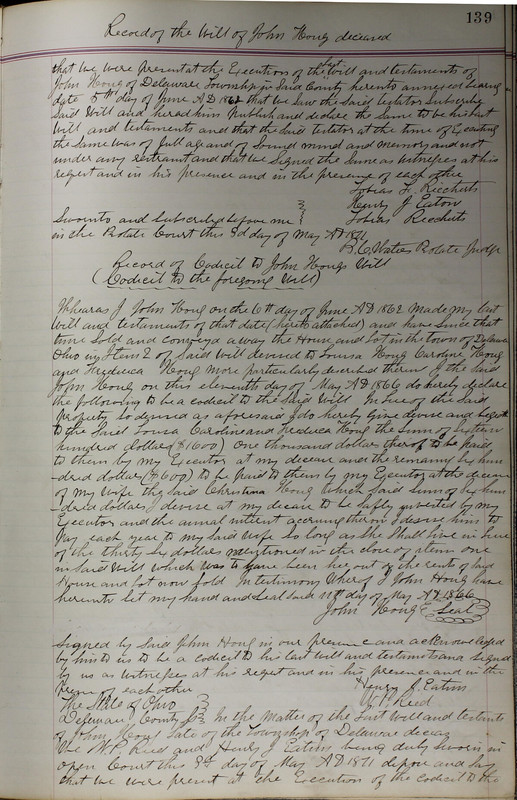 139
Record of the Will of John Hong deceased
that we were present at the Execution of the last Will and testaments of
John Hong of Delaware Township in Said County hereto annexed bearing
date 5th day of June AD 1862 that we Saw the Said testator Subscribe
Said Will and heard him Publish and declare the Same to be his last
Will and testaments and that the Said testator at the time of Executing
the Same was of full age and of Sound mind and memory and not
under any restraint and that we Signed the Same as witnesses at his
request and in his presence and in the presence of each other
Tobias Reicherts
Henry J Eaton
Sworn to and Subscribed before me Tobias Reicherts
in the Probate Court this 8d day of May AD 1871
B. C. Waters Probate Judge
Record of Codicil to John Hongs Will
(Codicil to the foregoing Will)
Whereas I John Hong on the 6th day of June AD 1862 made my last
Will and testaments of that date (hereto attached) and have Since that
time Sold and conveyed away the House and Lot in the town of Delaware
Ohio in Item 2 of Said Will devised to Louisa Hong Caroline Hong
and Fredrica Hong more particularly described therein I the Said
John Hong on this eleventh day of May AD 1866 do hereby declare
the following to be a codicil to the Said Will In lieu of the Said
Property So devised as aforesaid I do hereby Give devise and bequeath
to the Said Louisa Caroline and Fredrica Hong the Sum of Sixteen
hundred dollars ($1600) One thousand dollars thereof to be paid
to them by my Executor at my decease and the remaining Six hun
-dred dollars ($600) to be paid to them by my Executor at the decease
of my Wife the Said Christina Hong Which Said Sum of Six hun
-dred dollars I desire at my decease to be Safely invested by my
Executor and the annual interest accruing thereon I desire him to
Pay each year to my Said Wife So long as She Shall live in lieu
of the thirty Six dollars mentioned in the close of item one
in Said Will which was to have been her out of the rents of Said
House and Lot now Sold In testimony Wherof I John Hong have
hereunto Set my hand and Seal this 11th day of May AD 1866
John Hong Seal
Signed by Said John Hong in our presence and acknowledged
by him to us to be a codicil to his last Will and testaments and Signed
by us as Witnesses at his request and in his presence and in the
presence of each other Henry J. Eaton
W. P. Reed
The State of Ohio
Delaware County In the Matter of the Last Will and testaments
of John Hong Late of the Township of Delaware deceas
We W. P. Reed and Henry J. Eaton being duly Sworn in
open Court this 8d day of May AD 1871 depose and Say
that we were present at the Execution of the codicil to the